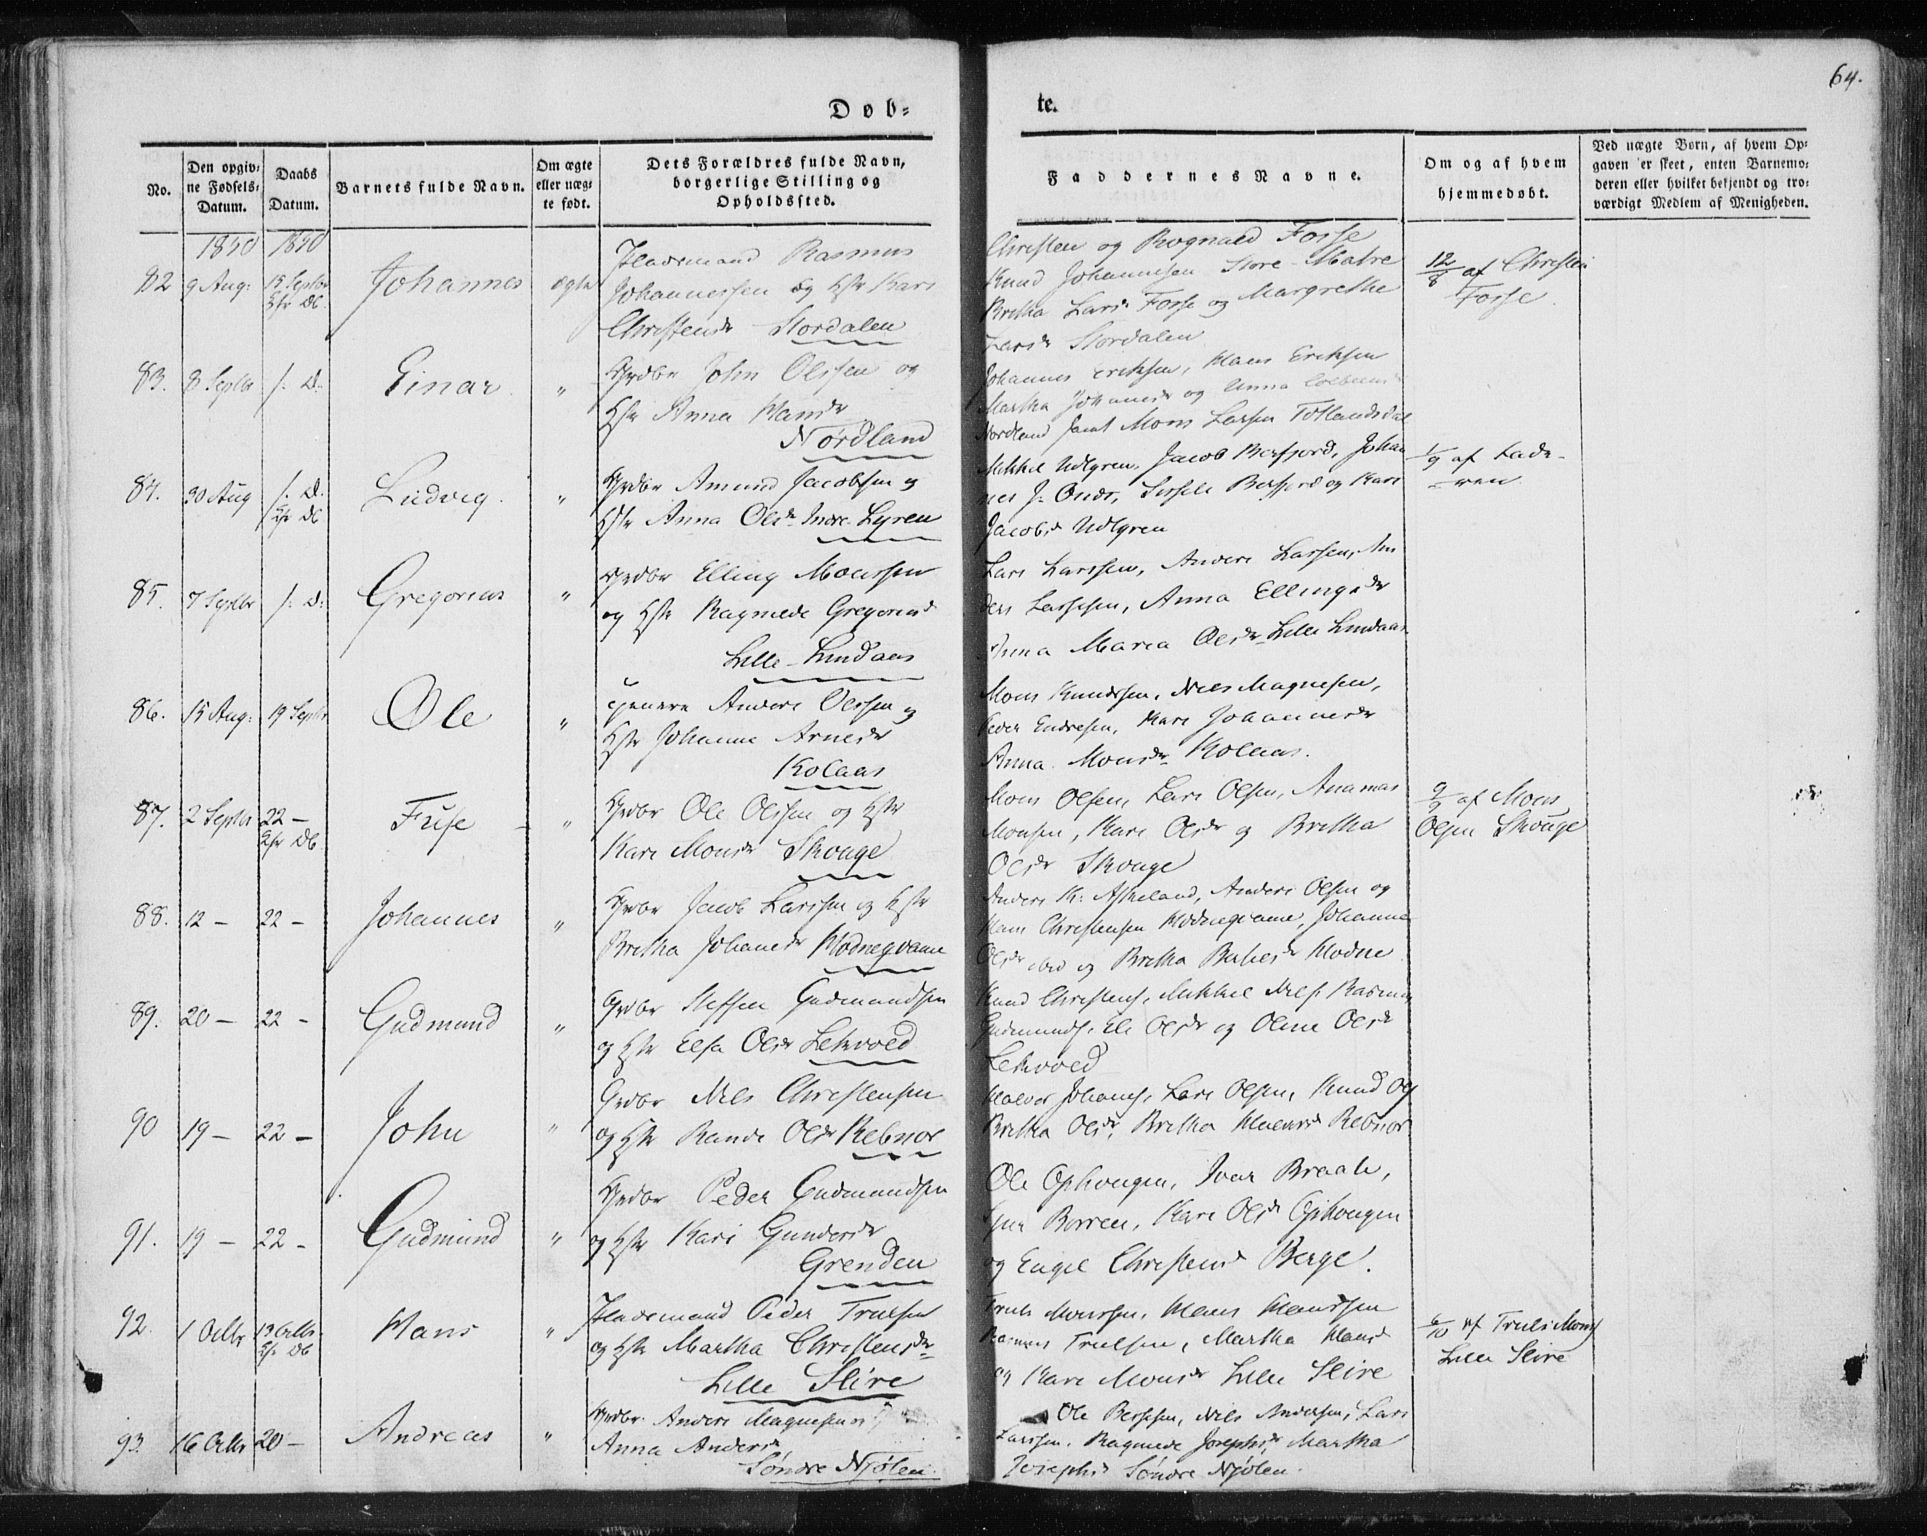 64.
Døb-
te.
No.
Den opgiv-
ne Fødsels-
Datum.
Daabs
Datum.
Barnets fulde Navn.
Om ægte
eller uæg-
te født.
Dets Forældres fulde Navn,
borgerlige Stilling og
Opholdssted.
Faddernes Navne.
Om og af hvem
hjemmedøbt.
Ved uægte Børn, af hvem Op-
gaven er skeet, enten Barnemo-
deren eller hvilket bekjendt og tro-
værdigt Medlem af Menigheden.
1850 1850
82 9 Aug: 15 Septbr Johannes ægte
Pladsmand Rasmus
Johannessen og Hstr Kari
Christensdr Stordalen
Christen og Rognald Fosse
Knud Johannesen Store-Matre
Britha Larsdr Fosse og Margrethe
Larsdr Stordalen
12/8 af Christen
Fosse.
83. 8 Septbr s. D. Einar "
Grdbr John Olssen og
Hstr Anna Hansdr
Nordland
Johannes Eriksen, Hans Eriksen
Martha Johannesdr og Anna
Nordland samt Mons Larsen Totlandsdal
84. 30 Aug s. D. Ludvig. "
Grdbr Amund Jacobsen og
Hstr Anna Olsdr Indre Lyren
Mikkel Udlyren, Jacob Berfjord, Johan
nes J. Sissele Berfjord og Kari
Jacobsdr Udlyren
1/9 af Fade-
ren
85. 7 Septbr s. D. Gregorius "
Grdbr Elling Monssen
og Hstr Ragnilde Gregoriusdr
Lille-Lindaas
Lars Larssen, Anders Larssen, An
ders Larssen, Anna Ellingsdr
Anna Maria Olsdr Lille Lindaas
86. 15 Aug: 19 Septbr Ole "
Tjenere Anders Olssen og
Hstr Johanne Arnesdr
Kolaas
Mons Knudssen, Niels Magnesen,
Peder Endresen, Kari Johannesdr
Anna Monsdr Kolaas.
87. 2 Septbr 22 - Fuse - "
Grdbr Ole Olssen og Hstr
Kari Monsdr Skouge
Mons Olsen, Lars Olsen, Ananias
Monsen, Kari Olsdr og Britha
Olsdr Skouge
9/9 af Mons
Olsen Skouge
88. 12 - 22 - Johannes "
Grdbr Jacob Larssen og Hstr
Britha Johansdr Kodneqvame
Anders K. Askeland, Anders Olsen og
Hans Christensen Kodneqvame, Johanna
Olsdr ibid og Britha Kodne
89. 20 - 22 - Gudmund "
Grdbr Steffen Gudmundsen
og Hstr Elsa Olsdr Lekvoed
Knud Christens, Mikkel Niels, Rasmus
Gudmunds, Eli Olsdr og Oline Olsdr
Lekvoed
90 19 - 22 - John "
Grdbr Niels Christensen
og Hstr Randi Olsdr Rebnor
Halvor Johans, Lars Olsen, Knud Ols
Britha Olsdr, Britha Halvorsdr Rebnor
91. 19 - 22 - Gudmund "
Grdbr Peder Gudmundsen
og Hstr Kari Gundersdr
Grenden
Ole Ophougen, Ivar Braate,
Borren, Kari Olsdr Ophougen
og Engel Christensdr Berge.
92. 1 Octbr 13 Octbr Hans "
Pladsmand Peder Truelsen
og Hstr Martha Christensdr
Lille Slire
Truls Monssen, Hans Hanssen
Rasmus Truelsen, Martha Hansdr
og Kari Monsdr Lille Slire
6/10 af Truls Mons
Lille Slire
93. 16 Octbr 20 - Andreas "
Grdbr. Anders Magnesen og
Anna Andersdr
Søndre Njølen.
Ole Berssen, Niels Andersen, Lars
Larssen, Ragnilde Josephsdr, Martha
Josephsdr Søndre Njølen.